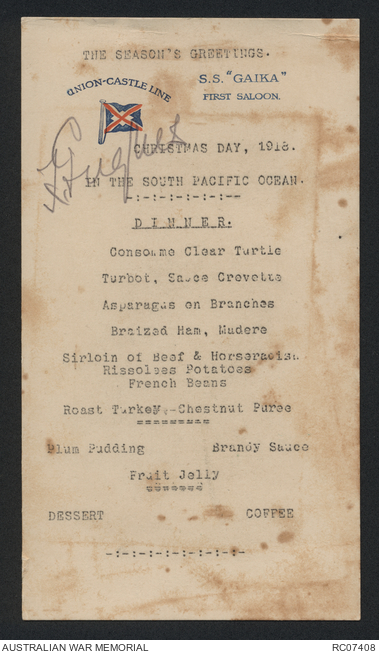 THE SEASON'S GREETINGS.
UNION-CASTLE LINE
S.S. "GAIKA"
FIRST SALOON.
CHRISTMAS DAY, 1918.
IN THE SOUTH PACIFIC OCEAN.
-:-:-:-:-:-:--
D I N N E R.
Consomme Clear Turtle
Turbot, Sauce Crevette
Asparagus en Branches
Braized Ham, Madere
Sirloin of Beef & Horseradish
Rissolees Potatoes
French Beans
Roast Turkey,-Chestnut Puree
=========
Plum Pudding Brandy Sauce
Fruit Jelly
=======
DESSERT COFFEE
-:-:-:-:-:-:-:-:-:-
AUSTRALIAN WAR MEMORIAL RC07408